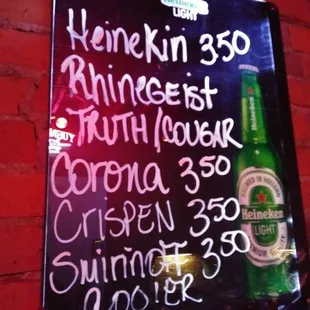 LIGHT
HeineKin 350
Rhinegeist
TRUTH/COUGAR
Corona 350
CRISPEN 350
Smirinoff 350
Heineken
LIGHT